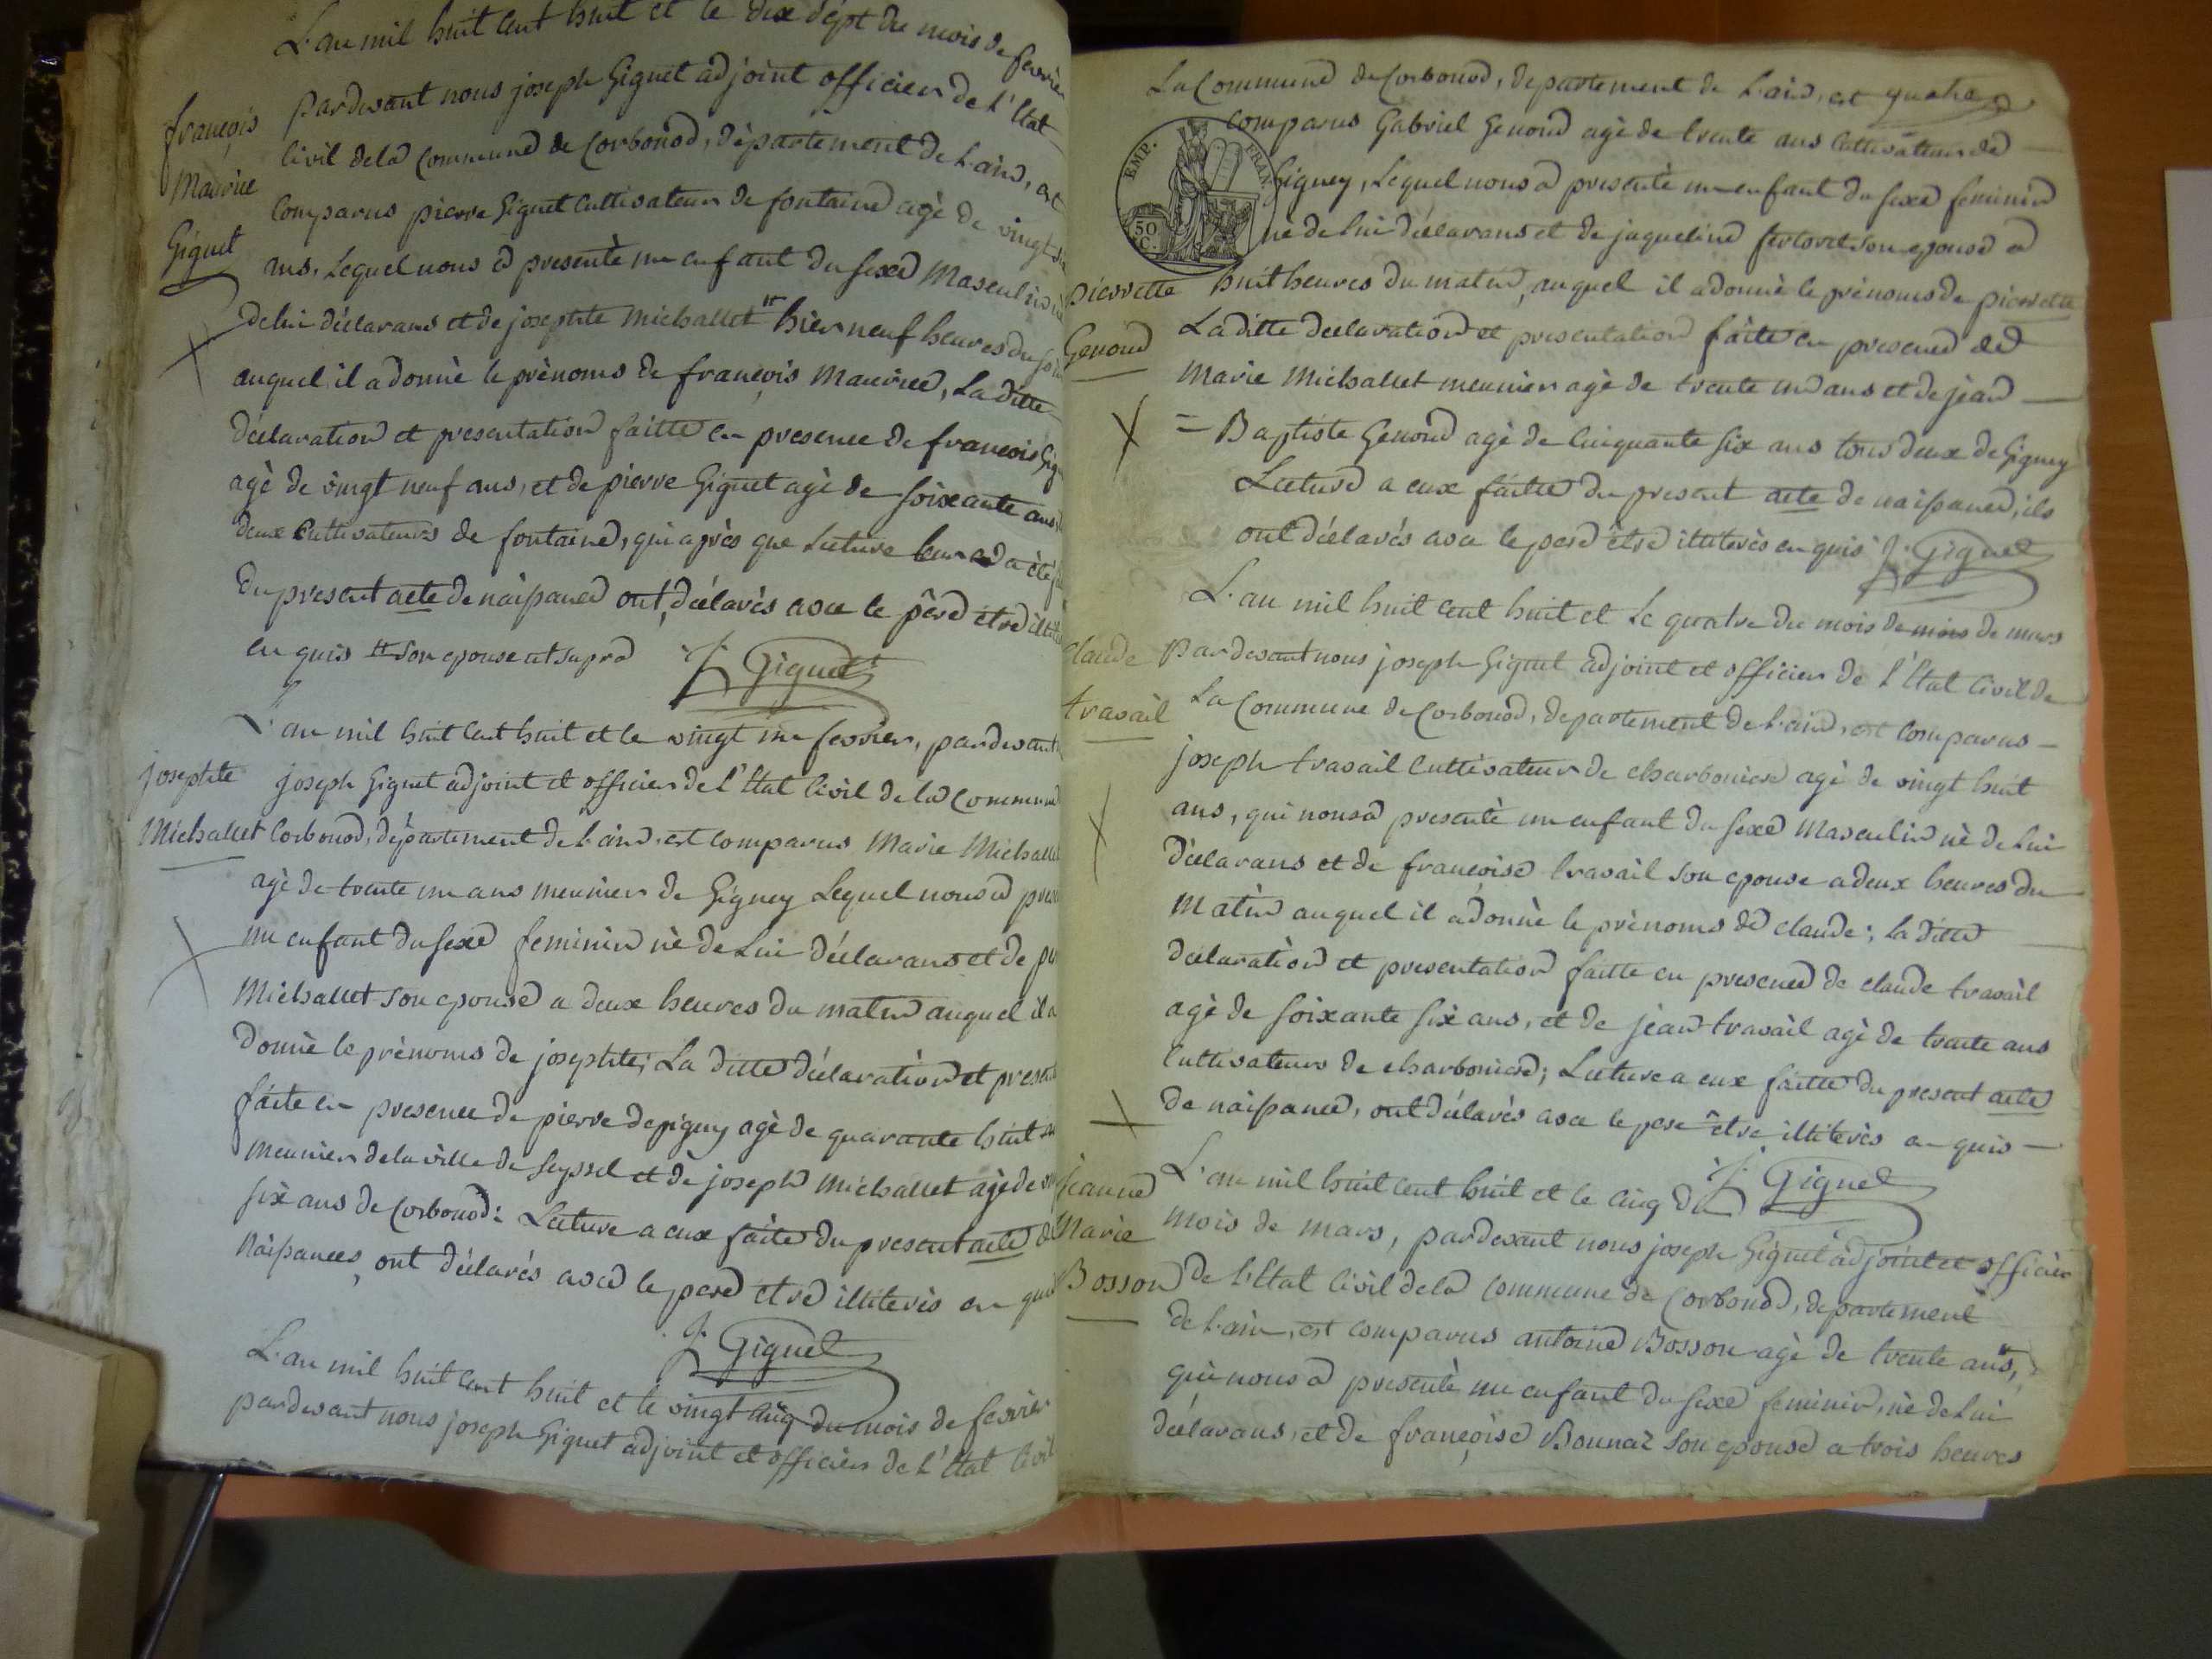 L'an mil huit cent huit et le dix sept du mois de fevrier
françois
Maurice
Giguet
pardevant nous joseph Giguet adjoint officier de l'Etat
Civil de la Commune de Corbonod, departement de L'ain, est
Comparus pierre Giguet Cultivateur de fontaine agé de vingt
ans. Lequel nous a presenté un enfant du sexe Masculin
de lui déclarans et de josephte Michallet # hier neuf heures du soir
auquel il a donné le prénoms de françois Maurice, La ditte
déclaration et presentation faitte en presence de francois
agé de vingt neuf ans, et de pierre Giguet agé de soixante ans
deux Cultivateurs de fontaine, qui après que Lecture leur a été
du present acte de naissance ont déclarés avec le père etre
en quis # son epouse ut supra J. Giguet
L'an mil huit cent huit et le vingt un fevrier, pardevant
josephte
Michallet
joseph Giguet adjoint et officier de l'Etat Civil de la Commune
Corbonod, département de L'ain, est Comparus Marie Michallet
agé de trente un ans meunier de Gigney Lequel nous a
un enfant du sexe feminin né de Lui déclarans et de
Michallet son epouse a deux heures du matin auquel il a
donné le prénoms de josephte; La ditte déclaration et
faite en presence de pierre depigny agé de quarante huit
meunier de la ville de Seyssel et de joseph Michallet agé de
six ans de Corbonod: Lecture a eux faite du present acte de
Naissances, ont déclarés avec le pere etre illiterés en quis
J. Giguet
L'an mil huit cent huit et le vingt cinq du mois de fevrier
pardevant nous joseph Giguet adjoint et officier de l'Etat Civil
La Commune de Corbonod, departement de L'ain, est quatre
EMP. FRAN.
50 C.
comparus Gabriel Genoud agé de trente ans Cultivateur de
Gigney, Lequel nous a presenté un enfant du sexe feminin
né de lui déclarans et de jaqueline son epouse a
pierrette
Genoud
huit heures du matin, auquel il a donné le prénoms de pierrette
La ditte declaration et presentation faite en presence de
Marie Michallet meunier agé de trente un ans et de jean
= Baptiste Genoud agé de Cinquante six ans tous deux de Gigney
Lecture a eux faitte du present acte de naissance, ils
ont déclarés avec le pere être illiterés en quis J. Giguet
L'an mil huit cent huit et Le quatre du mois de mars de mars
claude
travail
Pardevant nous joseph Giguet adjoint et officier de l'Etat Civil de
La Commune de Corbonod, departement de L'ain, est Comparus
joseph travail Cultivateur de charboniere agé de vingt huit
ans, qui nous a presenté un enfant du sexe Masculin né de Lui
déclarans et de françoise travail son epouse a deux heures du
Matin auquel il a donné le prénoms de claude; la ditte
declaration et presentation faitte en presence de claude travail
agé de soixante six ans, et de jean travail agé de trente ans
Cultivateurs de charboniere; Lecture a eux faitte du present acte
de naissance, ont déclarés avec le pere être illiterés en quis
J. Giguet
jeanne
Marie
Bosson
L'an mil huit cent huit et le cinq du
Mois de mars, pardevant nous joseph Giguet adjoint et officier
de L'Etat Civil de la Commune de Corbonod, departement
de L'ain, est comparus antoine Bosson agé de trente ans,
qui nous a presenté un enfant du sexe feminin, né de Lui
déclarans, et de françoise Bonnaz son epouse a trois heures